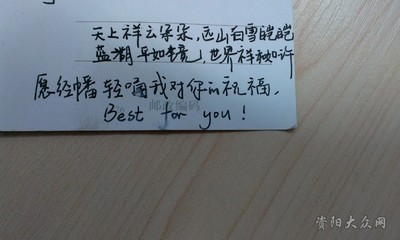 天上祥云朵朵，远山白雪皑皑
蓝湖平如镜，世界祥和许
愿经幡轻诵我对你的祝福，
邮政编码
Best for you!
资阳大众网